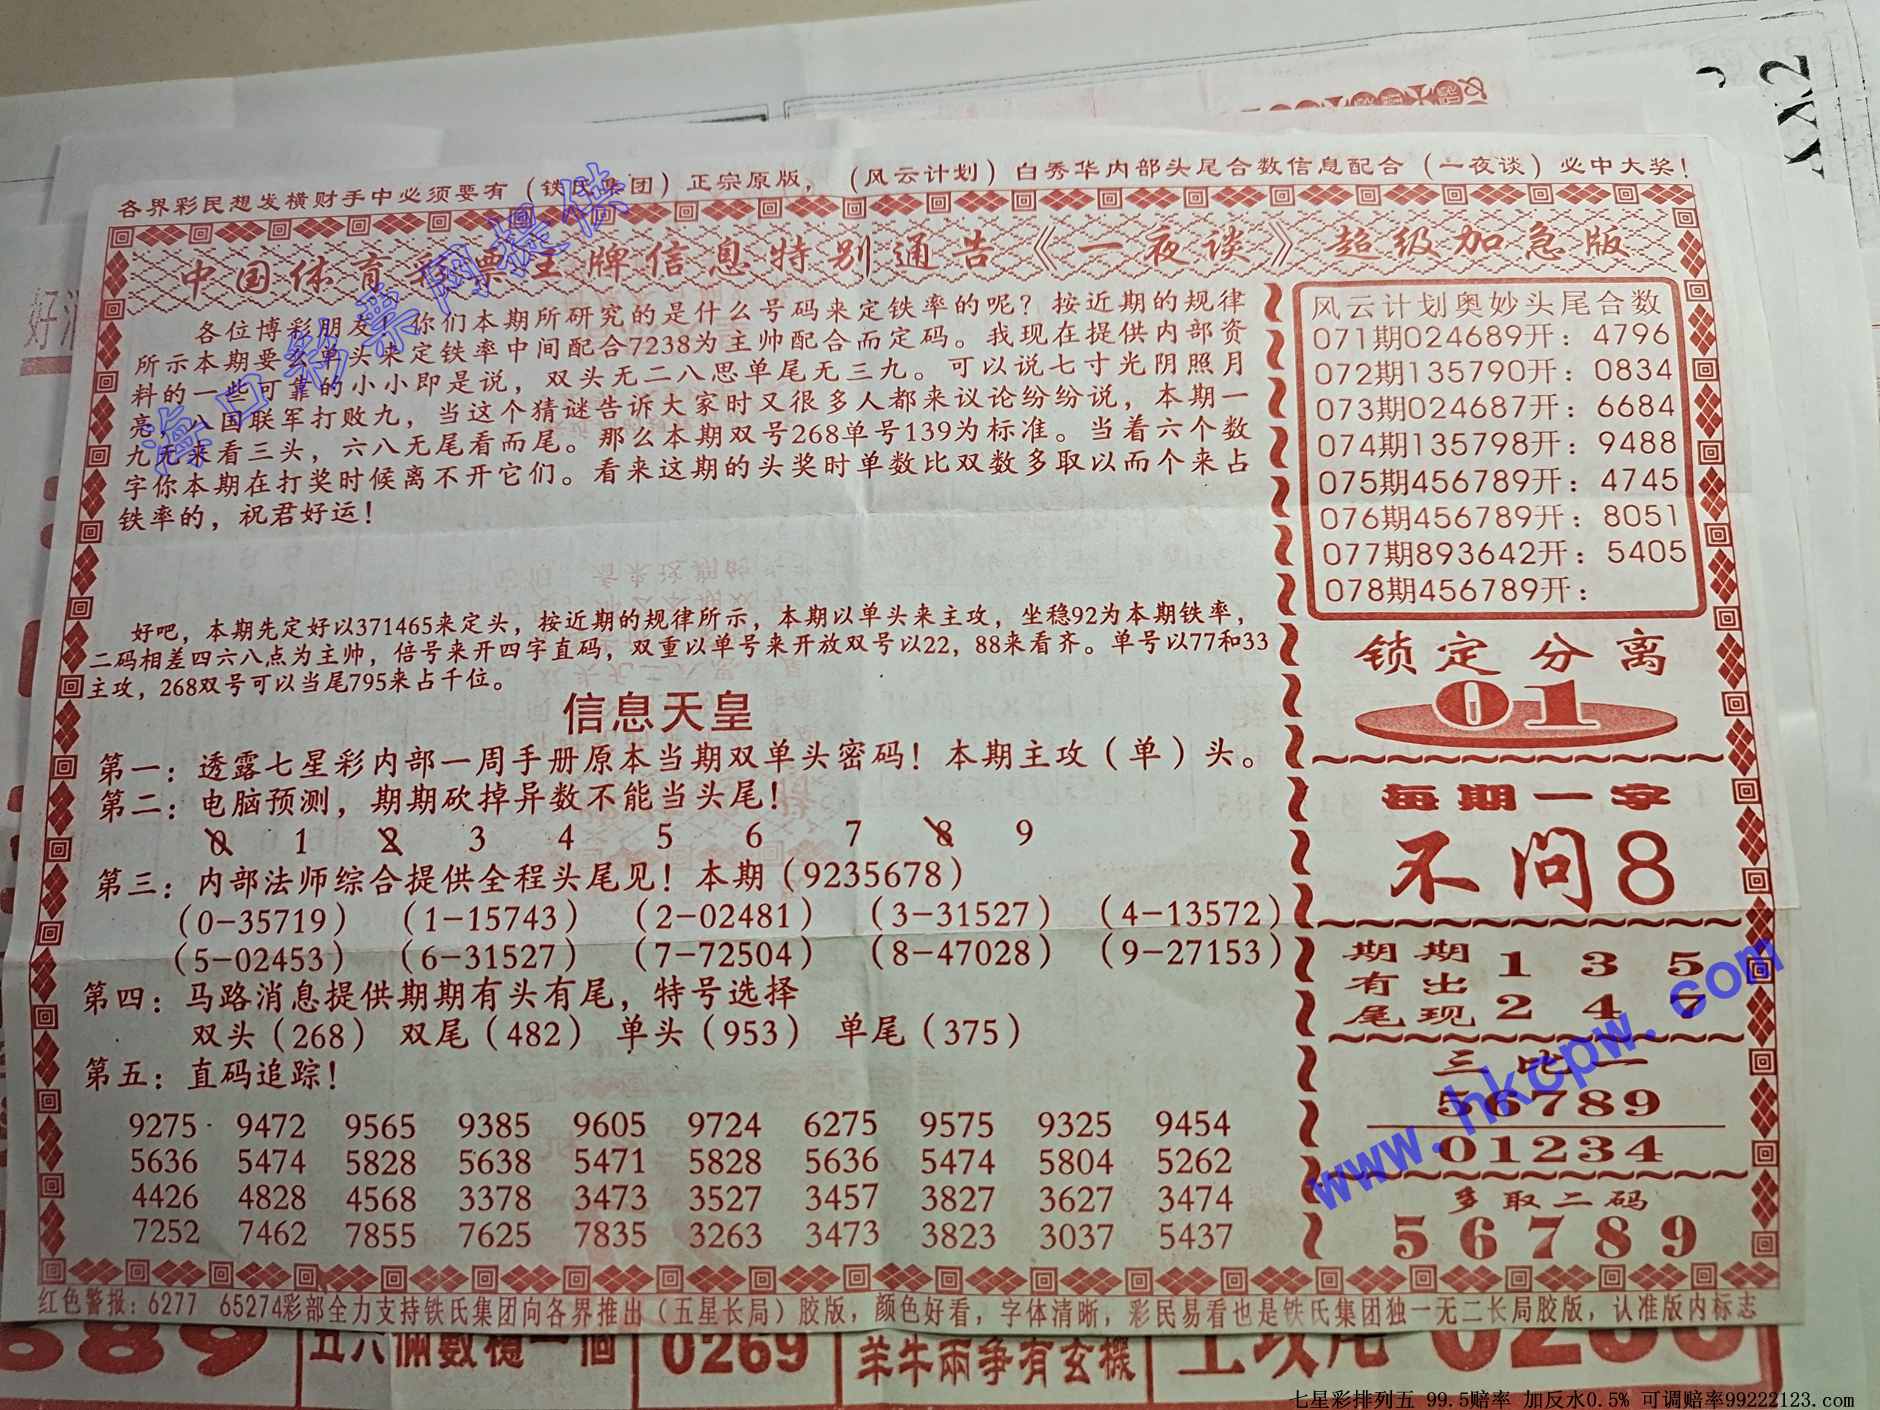 各界彩民想发横财手中必须要有（铁氏集团）正宗原版，（风云计划）白秀华内部头尾合数信息配合（一夜谈）必中大奖！
中国体育彩票王牌信息特别通告《一夜谈》超级加急版
各位博彩朋友！你们本期所研究的是什么号码来定铁率的呢？按近期的规律
所示本期要么单头来定铁率中间配合7238为主帅配合而定码。我现在提供内部资
料的一些可靠的小小即是说，双头无二八思单尾无三九。可以说七寸光阴照月
亮，八国联军打败九，当这个猜谜告诉大家时又很多人都来议论纷纷说，本期一
九无来看三头，六八无尾看而尾。那么本期双号268单号139为标准。当着六个数
字你本期在打奖时候离不开它们。看来这期的头奖时单数比双数多取以而个来占
铁率的，祝君好运！
好吧，本期先定好以371465来定头，按近期的规律所示，本期以单头来主攻，坐稳92为本期铁率，
二码相差四六八点为主帅，倍号来开四字直码，双重以单号来开放双号以22，88来看齐。单号以77和33
主攻，268双号可以当尾795来占千位。
信息天皇
第一：透露七星彩内部一周手册原本当期双单头密码！本期主攻（单）头。
第二：电脑预测，期期砍掉异数不能当头尾！
0 1 2 3 4 5 6 7 8 9
第三：内部法师综合提供全程头尾见！本期（9235678）
（0-35719）（1-15743）（2-02481）（3-31527）（4-13572）
（5-02453）（6-31527）（7-72504）（8-47028）（9-27153）
第四：马路消息提供期期有头有尾，特号选择
双头（268） 双尾（482） 单头（953） 单尾（375）
第五：直码追踪！
9275 9472 9565 9385 9605 9724 6275 9575 9325 9454
5636 5474 5828 5638 5471 5828 5636 5474 5804 5262
4426 4828 4568 3378 3473 3527 3457 3827 3627 3474
7252 7462 7855 7625 7835 3263 3473 3823 3037 5437
风云计划奥妙头尾合数
071期024689开：4796
072期135790开：0834
073期024687开：6684
074期135798开：9488
075期456789开：4745
076期456789开：8051
077期893642开：5405
078期456789开：
锁定分离
01
每期一字
不问8
期期 1 3 5
有出
尾现 2 4 7
三比一
56789
01234
多取二码
56789
红色警报：6277 65274彩部全力支持铁氏集团向各界推出（五星长局）胶版，颜色好看，字体清晰，彩民易看也是铁氏集团独一无二长局胶版，认准版内标志
海口彩票网提供
www.hkcpw.com
0269
羊牛兩爭有玄機
七星彩排列五 99.5赔率 加反水0.5% 可调赔率99222123.com